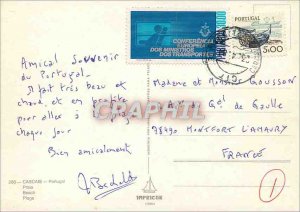 CONFERÊNCIA
EUROPEIA
DOS MINISTROS
DOS TRANSPORTES
PORTUGAL
5,00
Amical Souvenir
du Portugal.
Il fait très beau et
chaud, et on en profite
pour aller à
chaque jour
Bien amicalement
Madame et Monsieur Gousson
Av. du Gal de Gaulle
78490 MONTFORT L'AMAURY
FRANCE
CASCAIS - Portugal
Praia
Beach
Plage
1
CPAPHIL.com